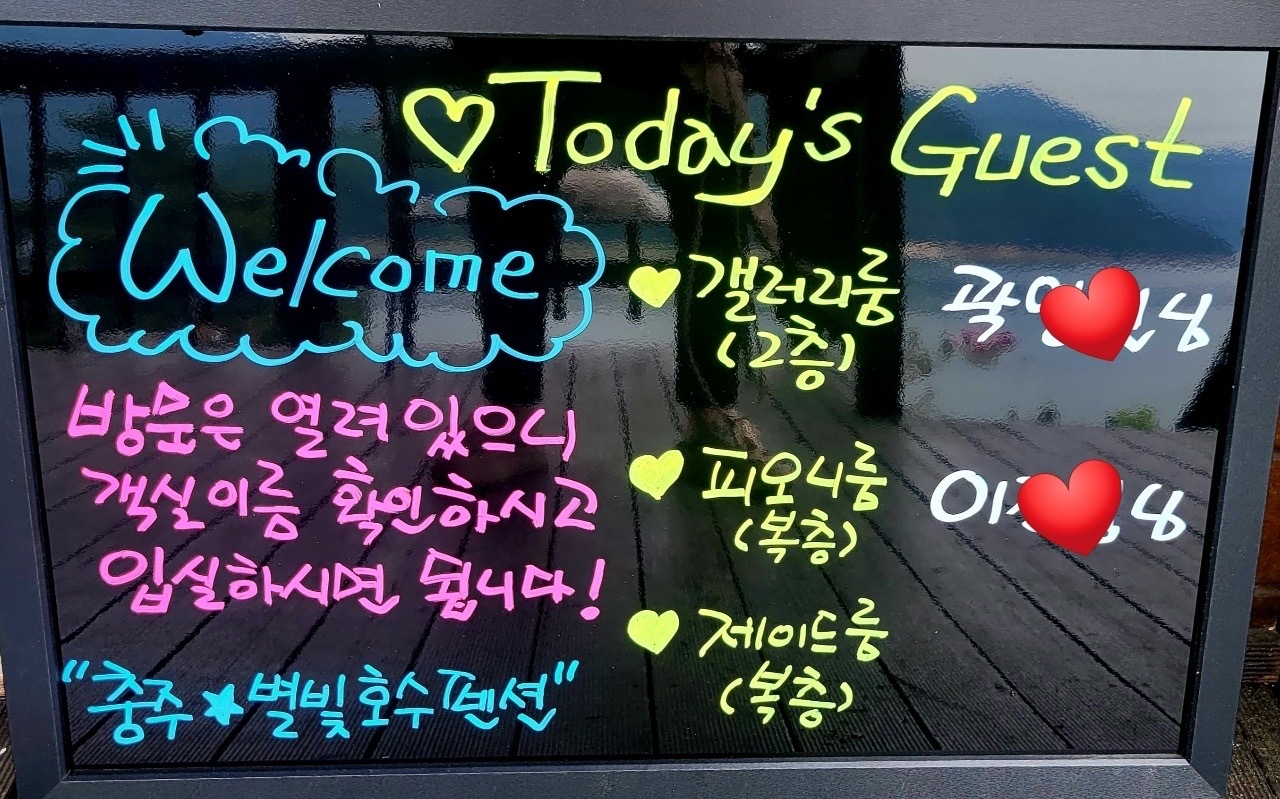 ♡Today's Guest
Welcome
방문은 열려 있으니
객실이름 확인하시고
입실하시면 됩니다!
"충주★별빛호수펜션"
♥ 갤러리룸
(2층)
♥ 피오니룸
(복층)
♥ 제이드룸
(복층)